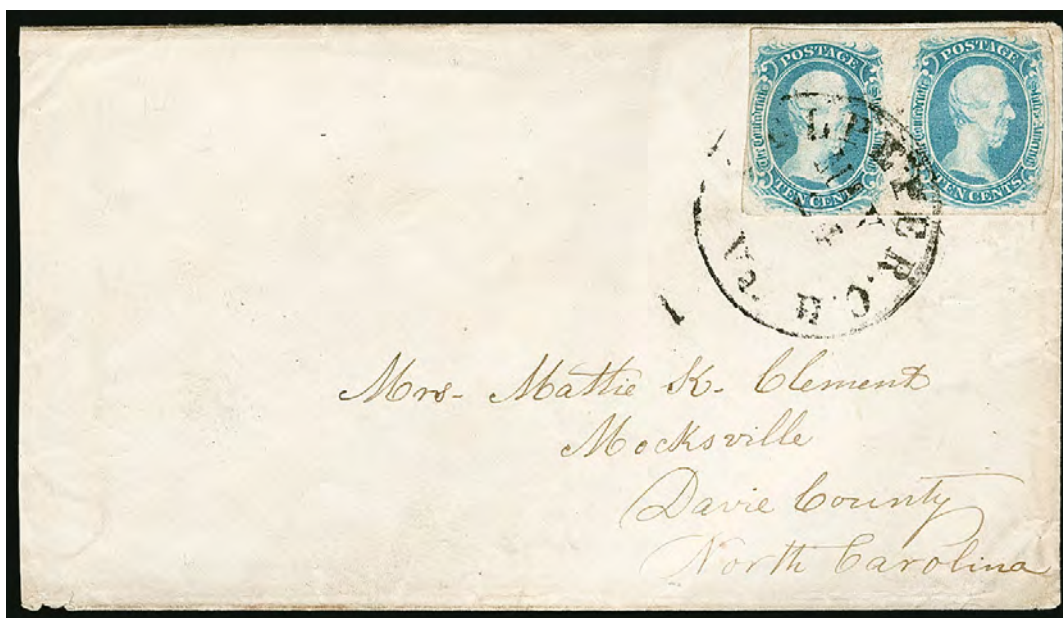 POSTAGE
The Confederate States of America
TEN CENTS
POSTAGE
The Confederate States of America
TEN CENTS
CULPEPER C.H. VA.
Mrs- Mattie K. Clement
Mocksville
Davie County
North Carolina